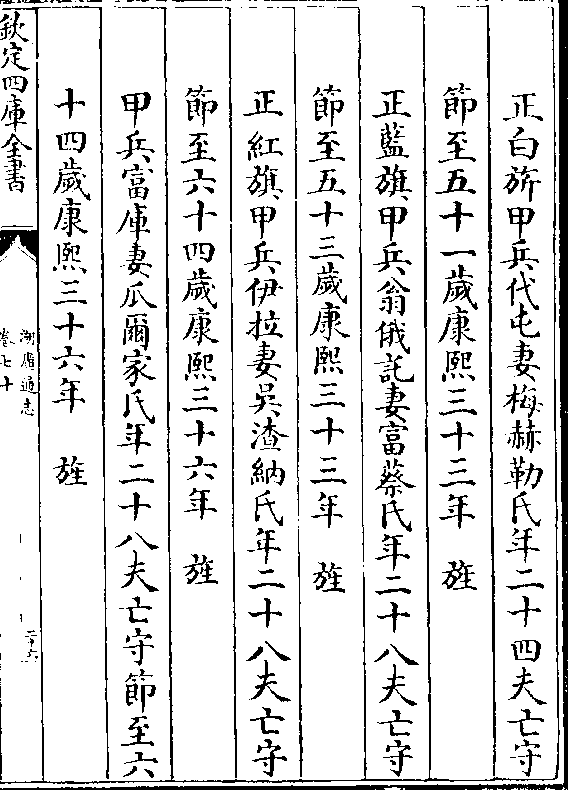 正白旂甲兵代屯妻梅赫勒氏年二十四夫亡守
節至五十一歲康熙三十三年　旌
正藍旗甲兵翁俄託妻富蔡氏年二十八夫亡守
節至五十三歲康熙三十三年　旌
正紅旗甲兵伊拉妻吳渣納氏年二十八夫亡守
節至六十四歲康熙三十六年　旌
甲兵富庫妻瓜爾家氏年二十八夫亡守節至六
十四歲康熙三十六年　旌
欽定四庫全書
通志
卷七十
二十六